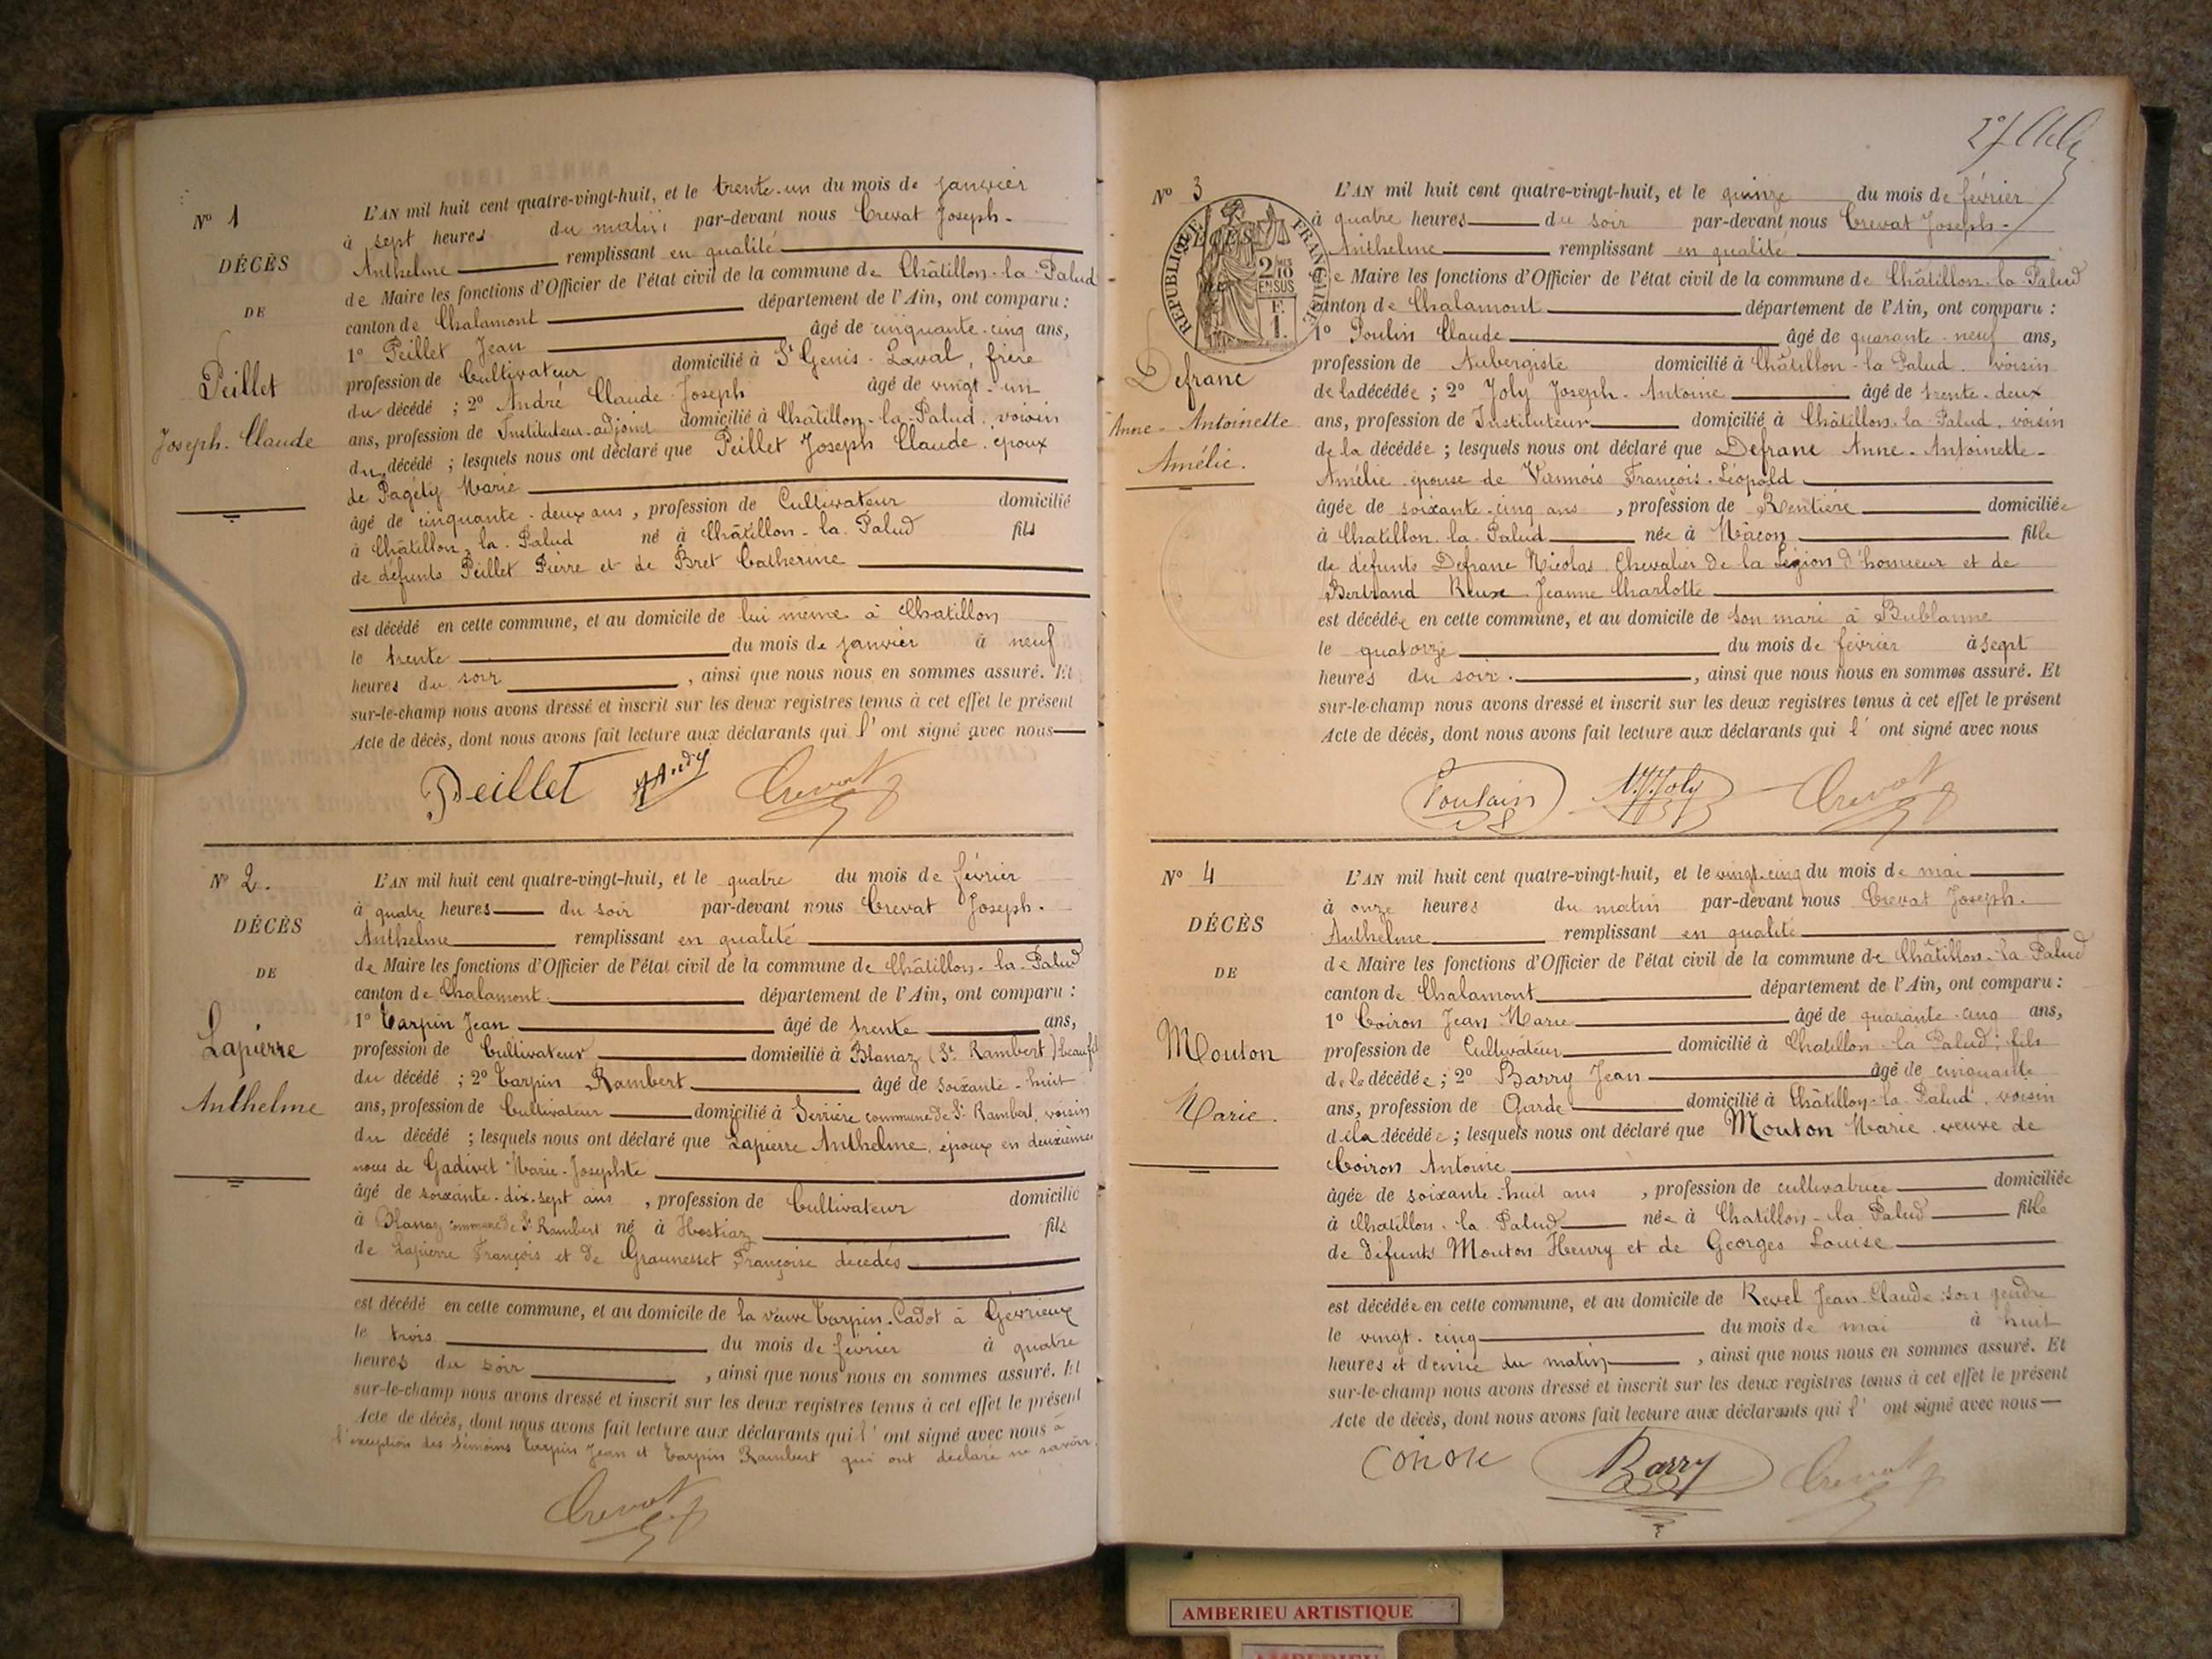 Nº 1
DÉCÈS
DE
Peillet
Joseph-Claude
L'AN mil huit cent quatre-vingt-huit, et le trente-un du mois de janvier
à sept heures du matin par-devant nous Crevat Joseph-
Anthelme remplissant en qualité
de Maire les fonctions d'Officier de l'état civil de la commune de Châtillon-la-Palud
canton de Chalamont département de l'Ain, ont comparu :
1º Peillet Jean âgé de cinquante-cinq ans,
profession de Cultivateur domicilié à St Genis-Laval, frère
du décédé ; 2º André Claude Joseph âgé de vingt-un
ans, profession de Instituteur-adjoint domicilié à Châtillon-la-Palud, voisin
du décédé ; lesquels nous ont déclaré que Peillet Joseph Claude, époux
de Pagély Marie
âgé de cinquante-deux ans, profession de Cultivateur domicilié
à Châtillon-la-Palud né à Châtillon-la-Palud fils
de défunts Peillet Pierre et de Bret Catherine
est décédé en cette commune, et au domicile de lui même à Chatillon
le trente du mois de janvier à neuf
heures du soir, ainsi que nous nous en sommes assuré. Et
sur-le-champ nous avons dressé et inscrit sur les deux registres tenus à cet effet le présent
Acte de décès, dont nous avons fait lecture aux déclarants qui l'ont signé avec nous
Peillet Crevat
Nº 2.
DÉCÈS
DE
Lapierre
Anthelme
L'AN mil huit cent quatre-vingt-huit, et le quatre du mois de février
à quatre heures du soir par-devant nous Crevat Joseph-
Anthelme remplissant en qualité
de Maire les fonctions d'Officier de l'état civil de la commune de Châtillon-la-Palud
canton de Chalamont département de l'Ain, ont comparu :
1º Tarpin Jean âgé de trente ans,
profession de Cultivateur domicilié à Blanaz (St Rambert) beau fils
du décédé ; 2º Tarpin Rambert âgé de soixante-huit
ans, profession de Cultivateur domicilié à Serrière commune de St Rambert, voisin
du décédé ; lesquels nous ont déclaré que Lapierre Anthelme, époux en deuxièmes
noces de Gadivet Marie-Josephte
âgé de soixante-dix-sept ans, profession de Cultivateur domicilié
à Blanaz commune de St Rambert né à Hostiaz fils
de Lapierre François et de Graunesset Françoise décédés
est décédé en cette commune, et au domicile de la veuve Tarpin-Cadot à Gévrieux
le trois du mois de février à quatre
heures du soir, ainsi que nous nous en sommes assuré. Et
sur-le-champ nous avons dressé et inscrit sur les deux registres tenus à cet effet le présent
Acte de décès, dont nous avons fait lecture aux déclarants qui l'ont signé avec nous à
l'exception des témoins Tarpin Jean et Tarpin Rambert qui ont déclaré ne savoir.
Crevat
Nº 3
RÉPUBLIQUE FRANÇAISE
2/10 EN SUS
F. 1.
Defranc
Anne-Antoinette
Amélie.
L'AN mil huit cent quatre-vingt-huit, et le quinze du mois de février
à quatre heures du soir par-devant nous Crevat Joseph-
Anthelme remplissant en qualité
de Maire les fonctions d'Officier de l'état civil de la commune de Châtillon-la-Palud
canton de Chalamont département de l'Ain, ont comparu :
1º Poulin Claude âgé de quarante-neuf ans,
profession de Aubergiste domicilié à Châtillon-la-Palud voisin
de la décédée ; 2º Joly Joseph-Antoine âgé de trente-deux
ans, profession de Instituteur domicilié à Châtillon-la-Palud, voisin
de la décédée ; lesquels nous ont déclaré que Defranc Anne-Antoinette-
Amélie épouse de Viennois François-Léopold
âgée de soixante-cinq ans, profession de Rentière domiciliée
à Chatillon-la-Palud née à Mâcon fille
de défunts Defranc Nicolas Chevalier de la Légion d'honneur et de
Bertrand Reux Jeanne Charlotte
est décédée en cette commune, et au domicile de son mari à Bublanne
le quatorze du mois de février à sept
heures du soir., ainsi que nous nous en sommes assuré. Et
sur-le-champ nous avons dressé et inscrit sur les deux registres tenus à cet effet le présent
Acte de décès, dont nous avons fait lecture aux déclarants qui l'ont signé avec nous
Poulain Joly Crevat
Nº 4
DÉCÈS
DE
Mouton
Marie.
L'AN mil huit cent quatre-vingt-huit, et le vingt-cinq du mois de mai
à onze heures du matin par-devant nous Crevat Joseph-
Anthelme remplissant en qualité
de Maire les fonctions d'Officier de l'état civil de la commune de Châtillon-la-Palud
canton de Chalamont département de l'Ain, ont comparu :
1º Coiron Jean Marie âgé de quarante-cinq ans,
profession de Cultivateur domicilié à Chatillon-la-Palud; fils
de la décédée ; 2º Barry Jean âgé de cinquante
ans, profession de Garde domicilié à Châtillon-la-Palud, voisin
de la décédée ; lesquels nous ont déclaré que Mouton Marie veuve de
Coiron Antoine
âgée de soixante-huit ans, profession de cultivatrice domiciliée
à Chatillon-la-Palud née à Chatillon-la-Palud fille
de défunts Mouton Henry et de Georges Louise
est décédée en cette commune, et au domicile de Revel Jean-Claude son gendre
le vingt-cinq du mois de mai à huit
heures et demie du matin, ainsi que nous nous en sommes assuré. Et
sur-le-champ nous avons dressé et inscrit sur les deux registres tenus à cet effet le présent
Acte de décès, dont nous avons fait lecture aux déclarants qui l'ont signé avec nous
Barry Crevat
AMBERIEU ARTISTIQUE
AMBERIEU